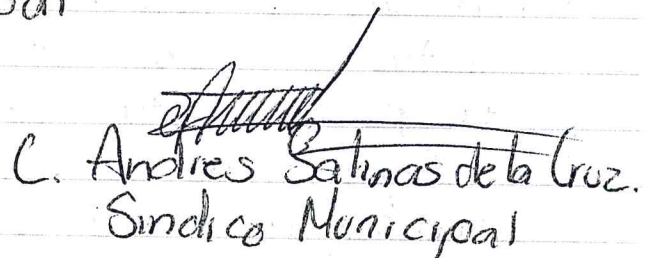 C. Andres Salinas de la Cruz.
Sindico Municipal